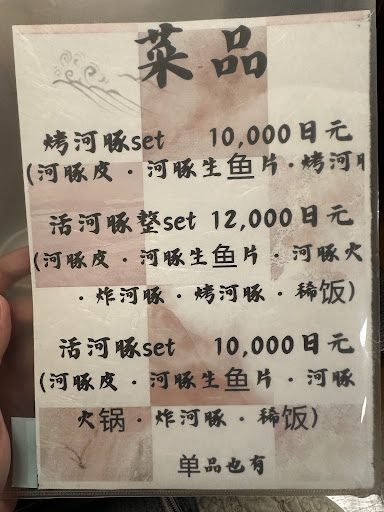 菜品
烤河豚set 10,000日元
(河豚皮·河豚生鱼片·烤河
活河豚整set 12,000日元
(河豚皮·河豚生鱼片·河豚火
·炸河豚·烤河豚·稀饭)
活河豚set 10,000日元
(河豚皮·河豚生鱼片·河豚
火锅·炸河豚·稀饭)
单品也有